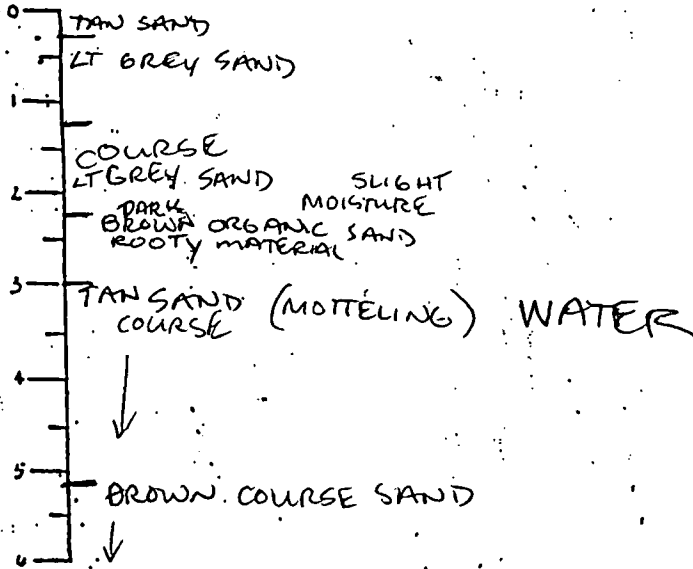 0
TAN SAND
LT GREY SAND
1
COURSE
LT GREY SAND SLIGHT
2 MOISTURE
DARK
BROWN ORGANIC SAND
ROOTY MATERIAL
3
TAN SAND (MOTTELING) WATER
COURSE
4
5
BROWN COURSE SAND
6